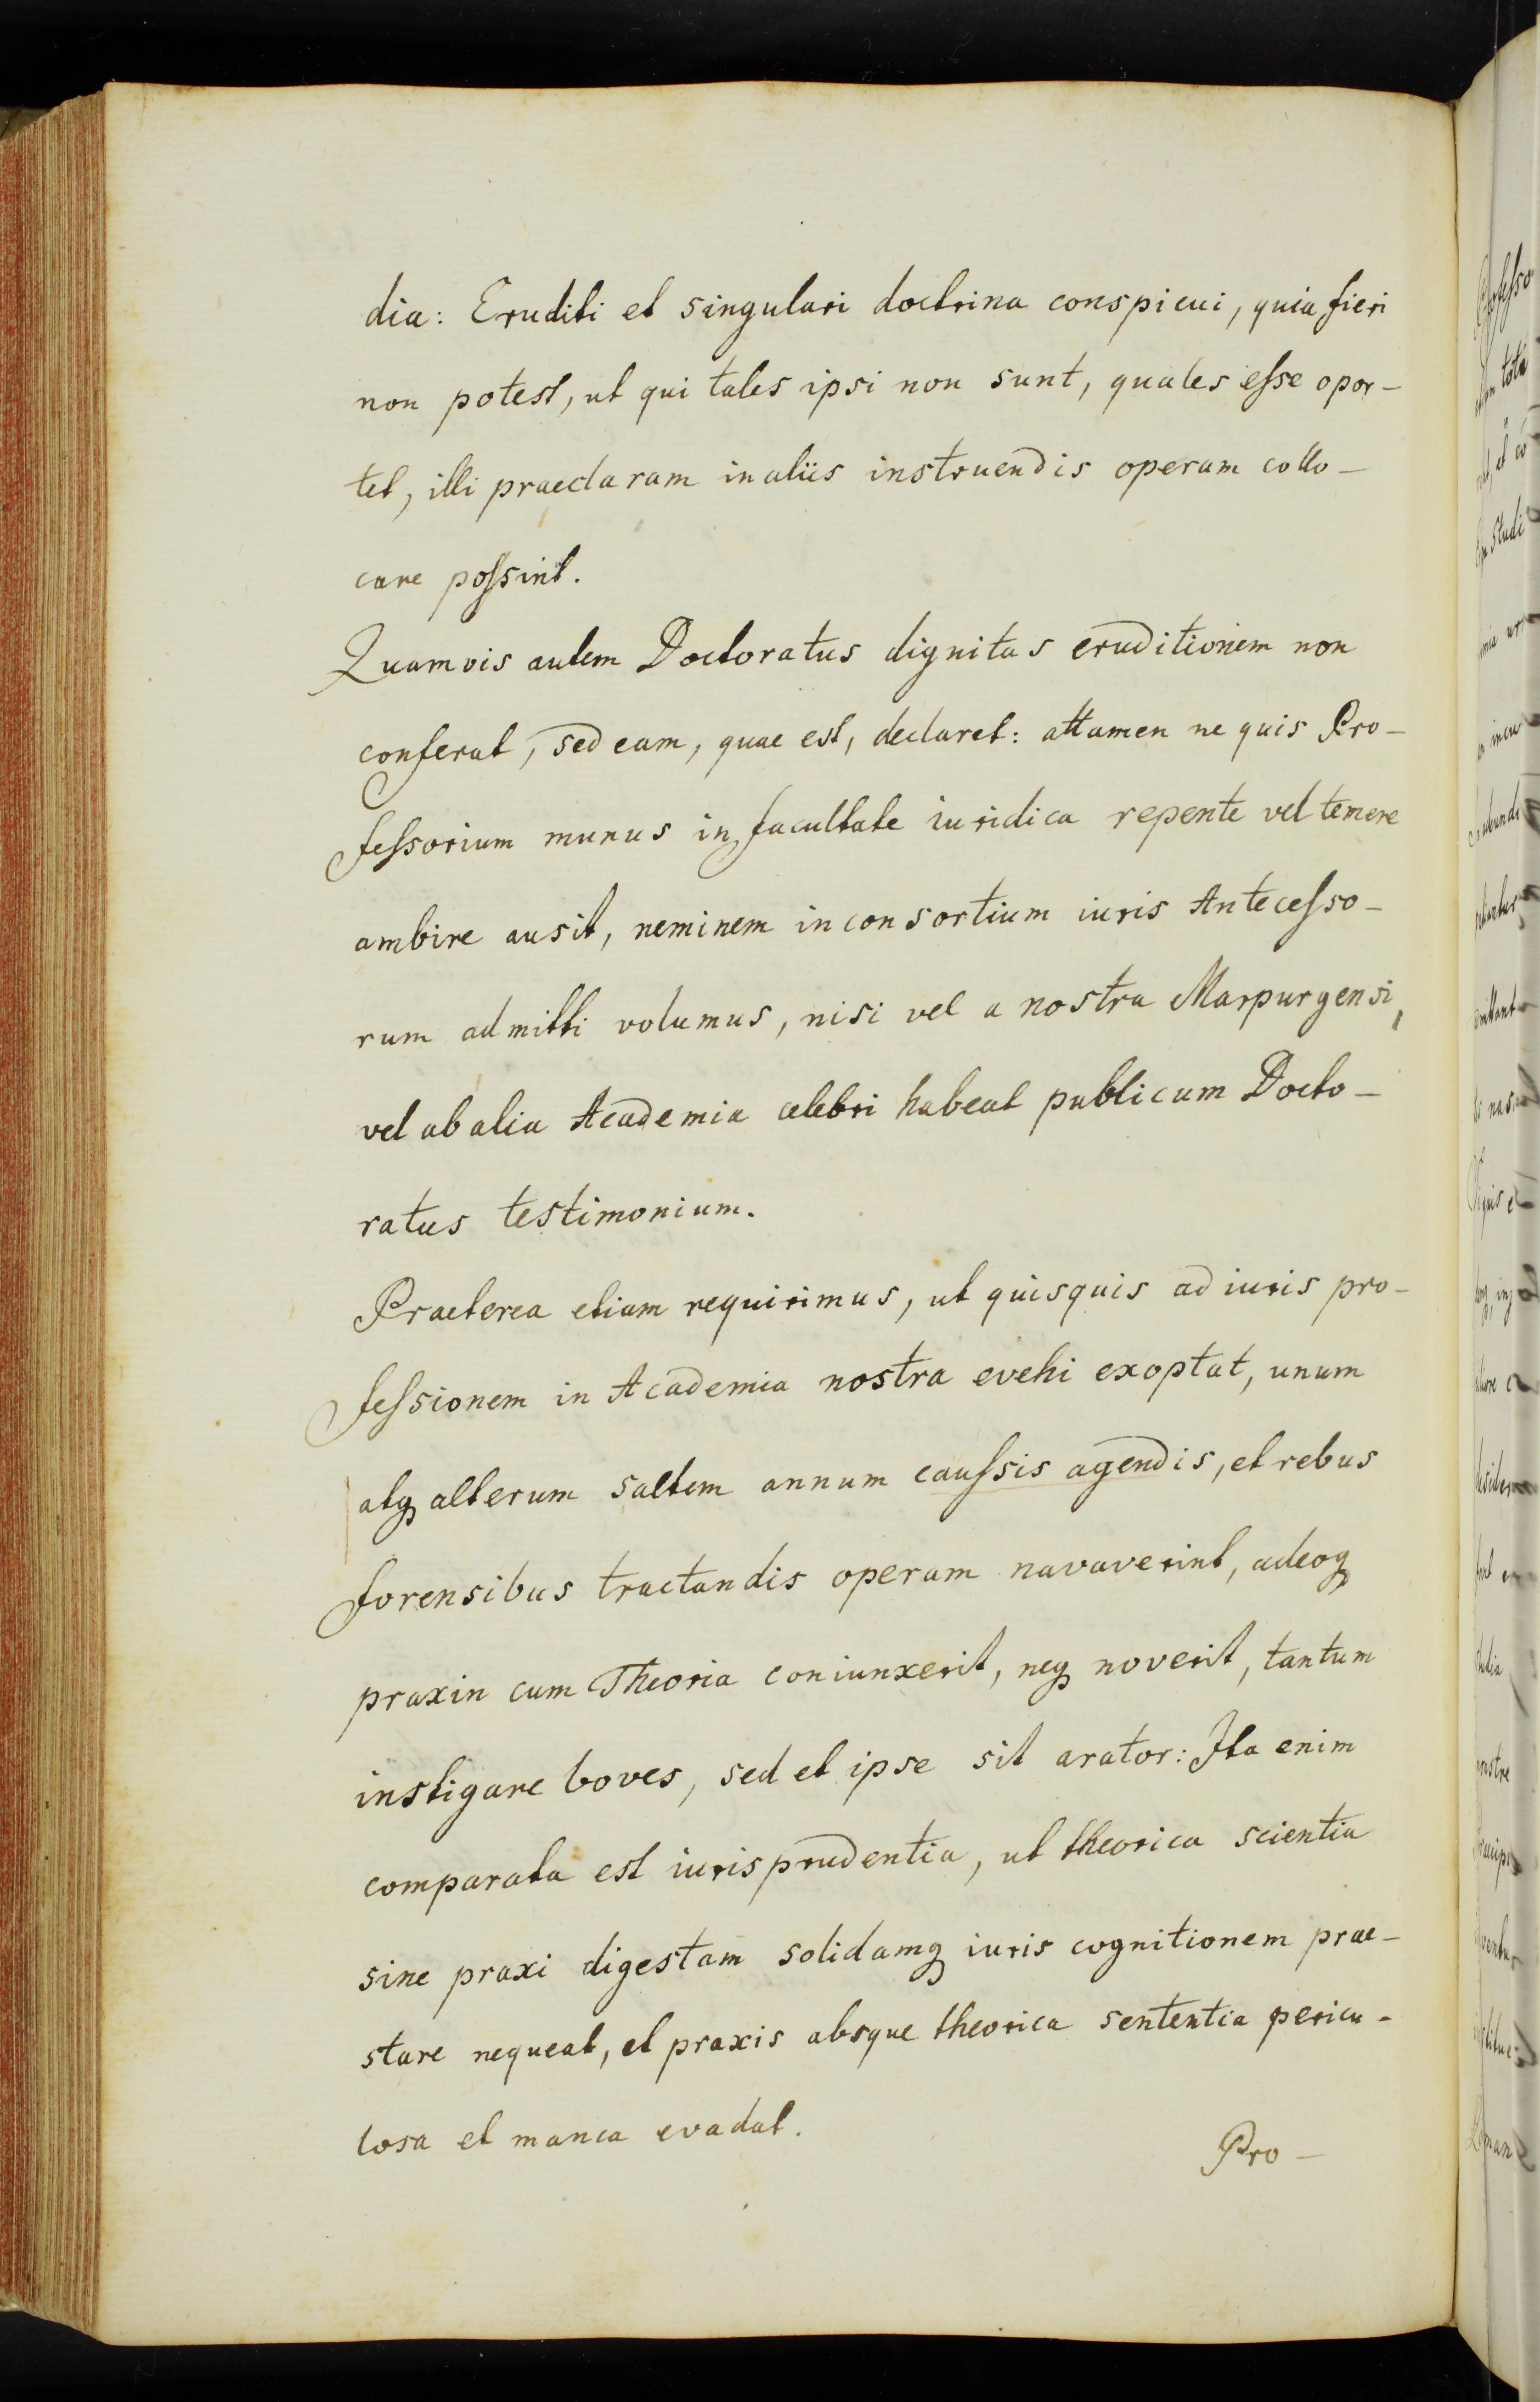 dia: Eruditi et singulari doctrina conspicui, quia fieri
non potest, ut qui tales ipsi non sunt, quales eſse opor-
tet, illi praeclaram in aliis instruendis operam collo-
care poſsint.
Quamvis autem Doctoratus dignitas eruditionem non
conferat, sed eam, quae est, declaret: attamen ne quis Pro-
feſsorium munus in facultate iuridica repente vel temere
ambire ausit, neminem in consortium iuris Anteceſso-
rum admitti volumus, nisi vel a nostra Marpurgensi,
vel ab alia Academia celebri habeat publicum Docto-
ratus testimonium.
Praeterea etiam requirimus, ut quisquis ad iuris pro-
feſsionem in Academia nostra evehi exoptat, unum
atq alterum saltem annum cauſsis agendis, et rebus
forensibus tractandis operam navaverint, adeoq
praxin cum Theoria coniunxerit, neq noverit, tantum
instigare boves, sed et ipse sit arator: Ita enim
comparata est iurisprudentia, ut theorica scientia
sine praxi digestam solidamq iuris cognitionem prae-
stare nequeat, et praxis absque theorica sententia pericu-
losa et manca evadat.
Pro-